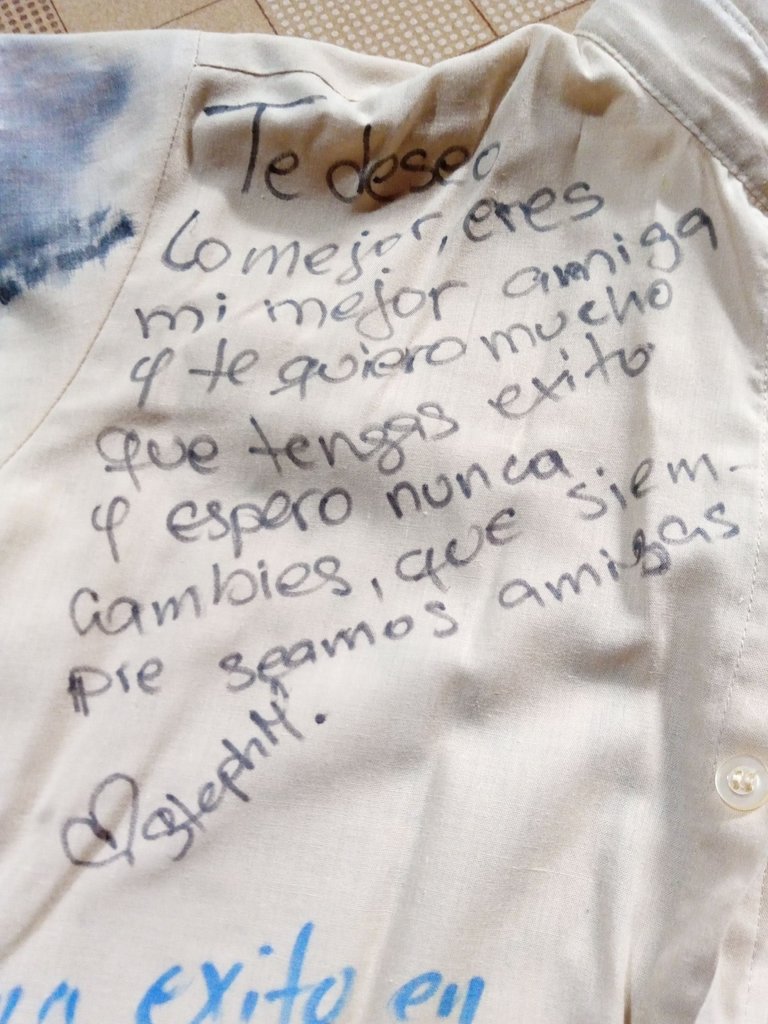 Te deseo
Lo mejor, eres
mi mejor amiga
y te quiero mucho
que tengas exito
y espero nunca
Cambies, que siem-
pre seamos amigas
♡ stephM.
exito en